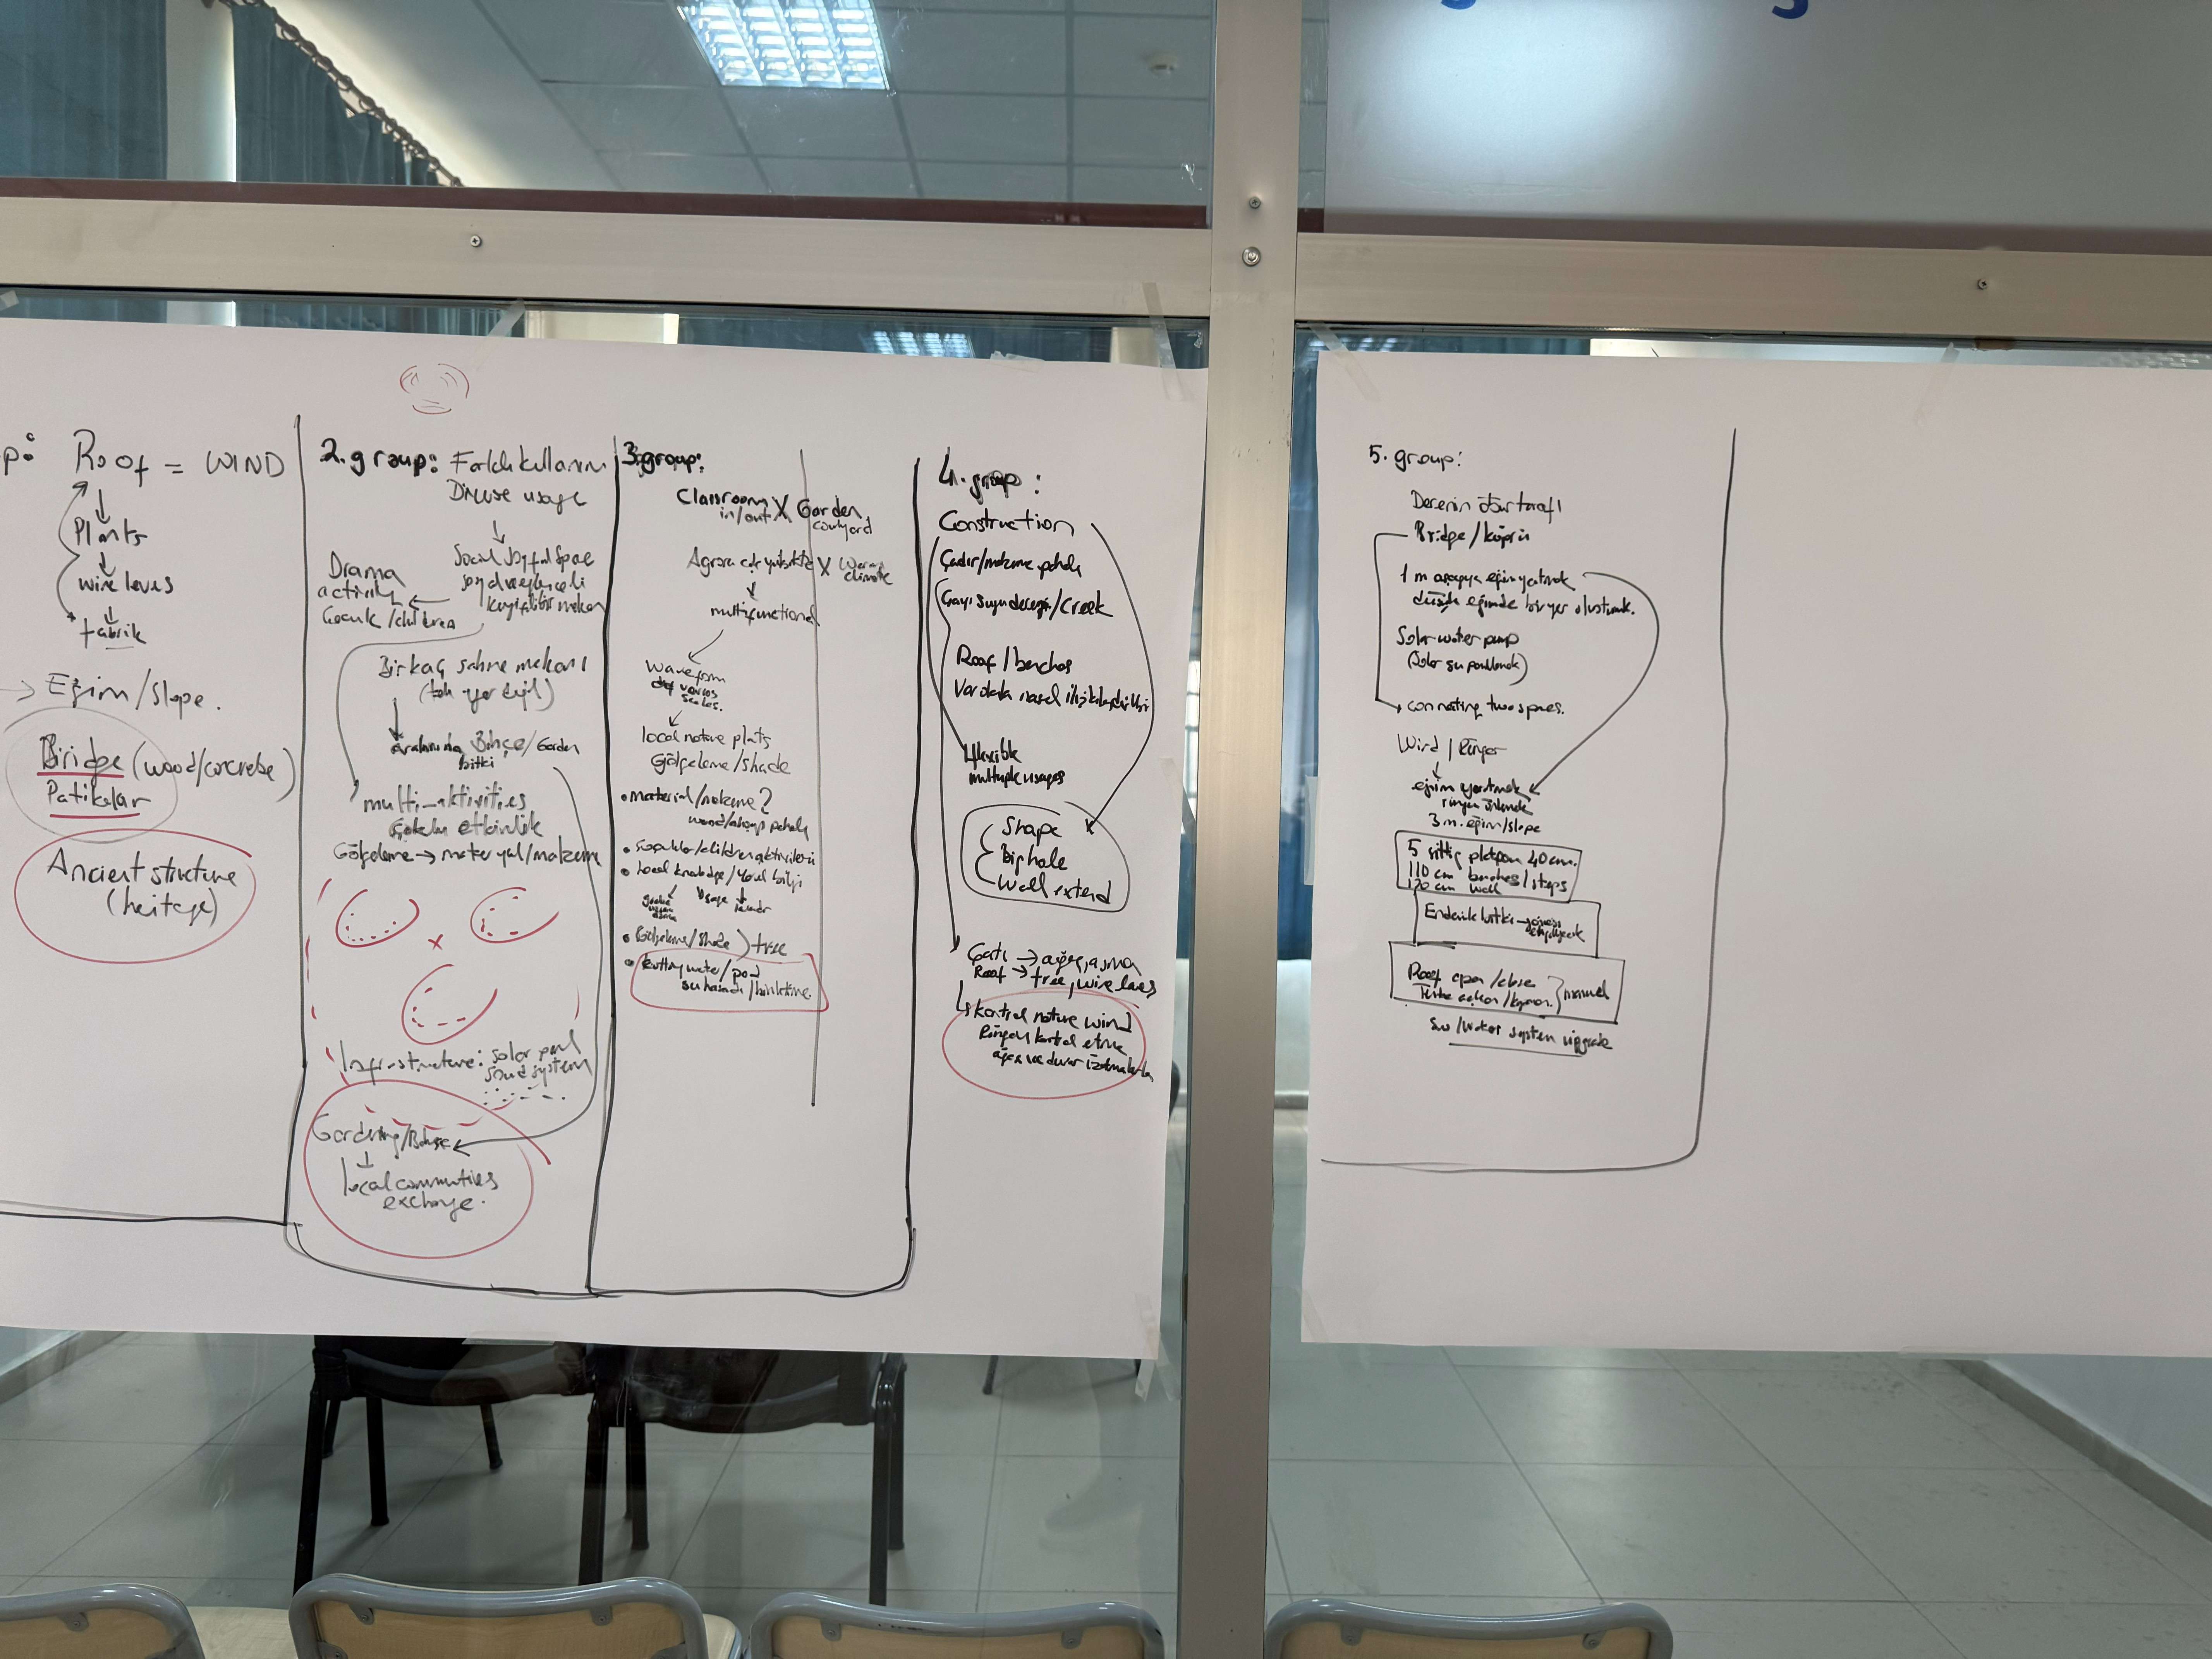 p: Roof = WIND
Plants
wire leves
fabrik
Eğim/slope.
Bridge (wood/concrete)
Patikalar
Ancient structure
(heritage)
2. group: Farklı kullanım
Diverse usage
Social Joyful Space
Drama
activity
Çocuk/children
Birkaç sahne mekanı
(tek yer değil)
Aralarında Bahçe/Garden
bitki
multi-aktivities
çoklu etkinlik
Gölgeleme → materyal/malzeme
Infrastructure: solar panel
sound system
Gardening/Bahçe
local communities
exchange.
3. group:
Classroom X Garden
in/out courtyard
X Warm
climate
multifunctional
Waveform
various
scales.
local native plants
Gölgeleme/shade
• material/malzeme?
wood/ahşap pahalı
• Çocuklar/children aktivitileri
• Local knowledge/Yerel bilgi
• Gölgeleme/shade ) tree
su hasadı/biriktirme
4. group:
Construction
Çadır/malzeme pahalı
Çayı suyu deresi/creek
Roof/benches
Var olanla nasıl ilişkilendirilir
flexible
multiple usages
Shape
Big hole
Wall extend
Çatı → ağaç, asma
Roof → tree, wire leaves
kontrol nature wind
Rüzgarı kontrol etme
ağaç ve duvar
5. group:
Derenin öbür tarafı
Bridge/köprü
1 m aşağıya eğim yatmak
düşük eğimde bir yer oluşturmak.
Solar water pump
connating two spaces.
Wind/Rüzgar
eğim yaratmak
rüzgar önlemek
3 m. eğim/slope
5 sittig platform 40 cm.
110 cm benches/steps
120 cm wall
Endemik bitki →
Roof open/close } manuel
Su/Water system upgrade